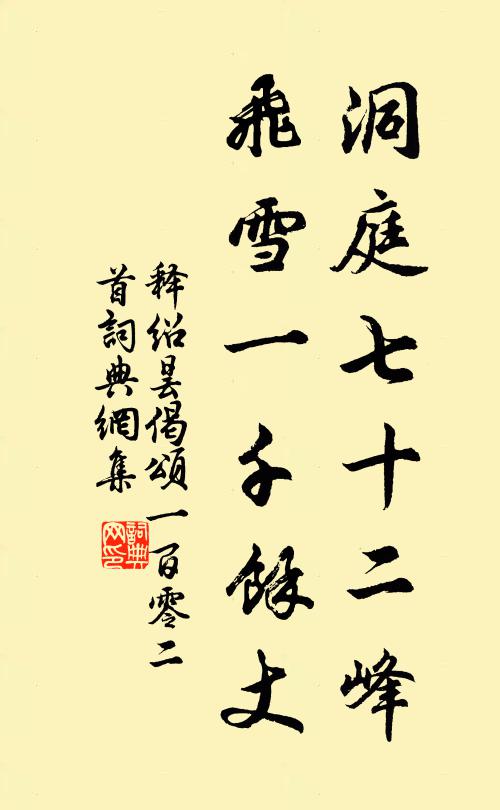 洞庭七十二峰
飛雪一千餘丈
释绍昙偈頌一百零二
首詞典網集
詞典
网印